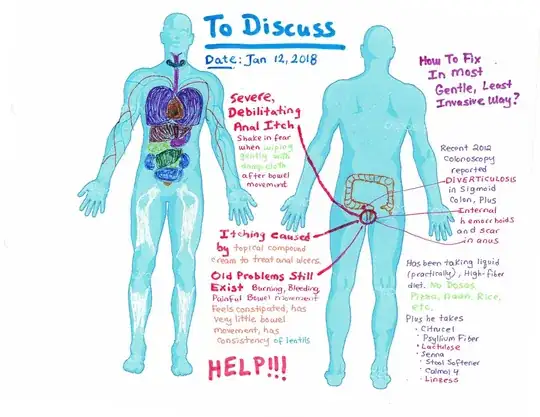 To Discuss
Date: Jan 12, 2018
How To Fix
In Most
Gentle, Least
Invasive Way?
Severe,
Debilitating
Anal Itch
Shake in fear
when wiping
gently with
damp cloth
after bowel
movement
Recent 2012
Colonoscopy
reported
DIVERTICULOSIS
in Sigmoid
Colon, Plus
Internal
hemorrhoids
and scar
in anus
Itching caused
by topical compound
cream to treat anal ulcers.
Old Problems Still
Exist Burning, Bleeding,
Painful Bowel movement
Feels constipated, has
very little bowel
movement, has
consistency of lentils
HELP!!!
Has been taking liquid
(practically), High-fiber
diet. No Dosas,
Pizza, Naan, Rice,
etc.
Plus he takes
• Citrucel
• Psyllium Fiber
• Lactulose
• Senna
• Stool Softener
• Calmol 4
• Linzess